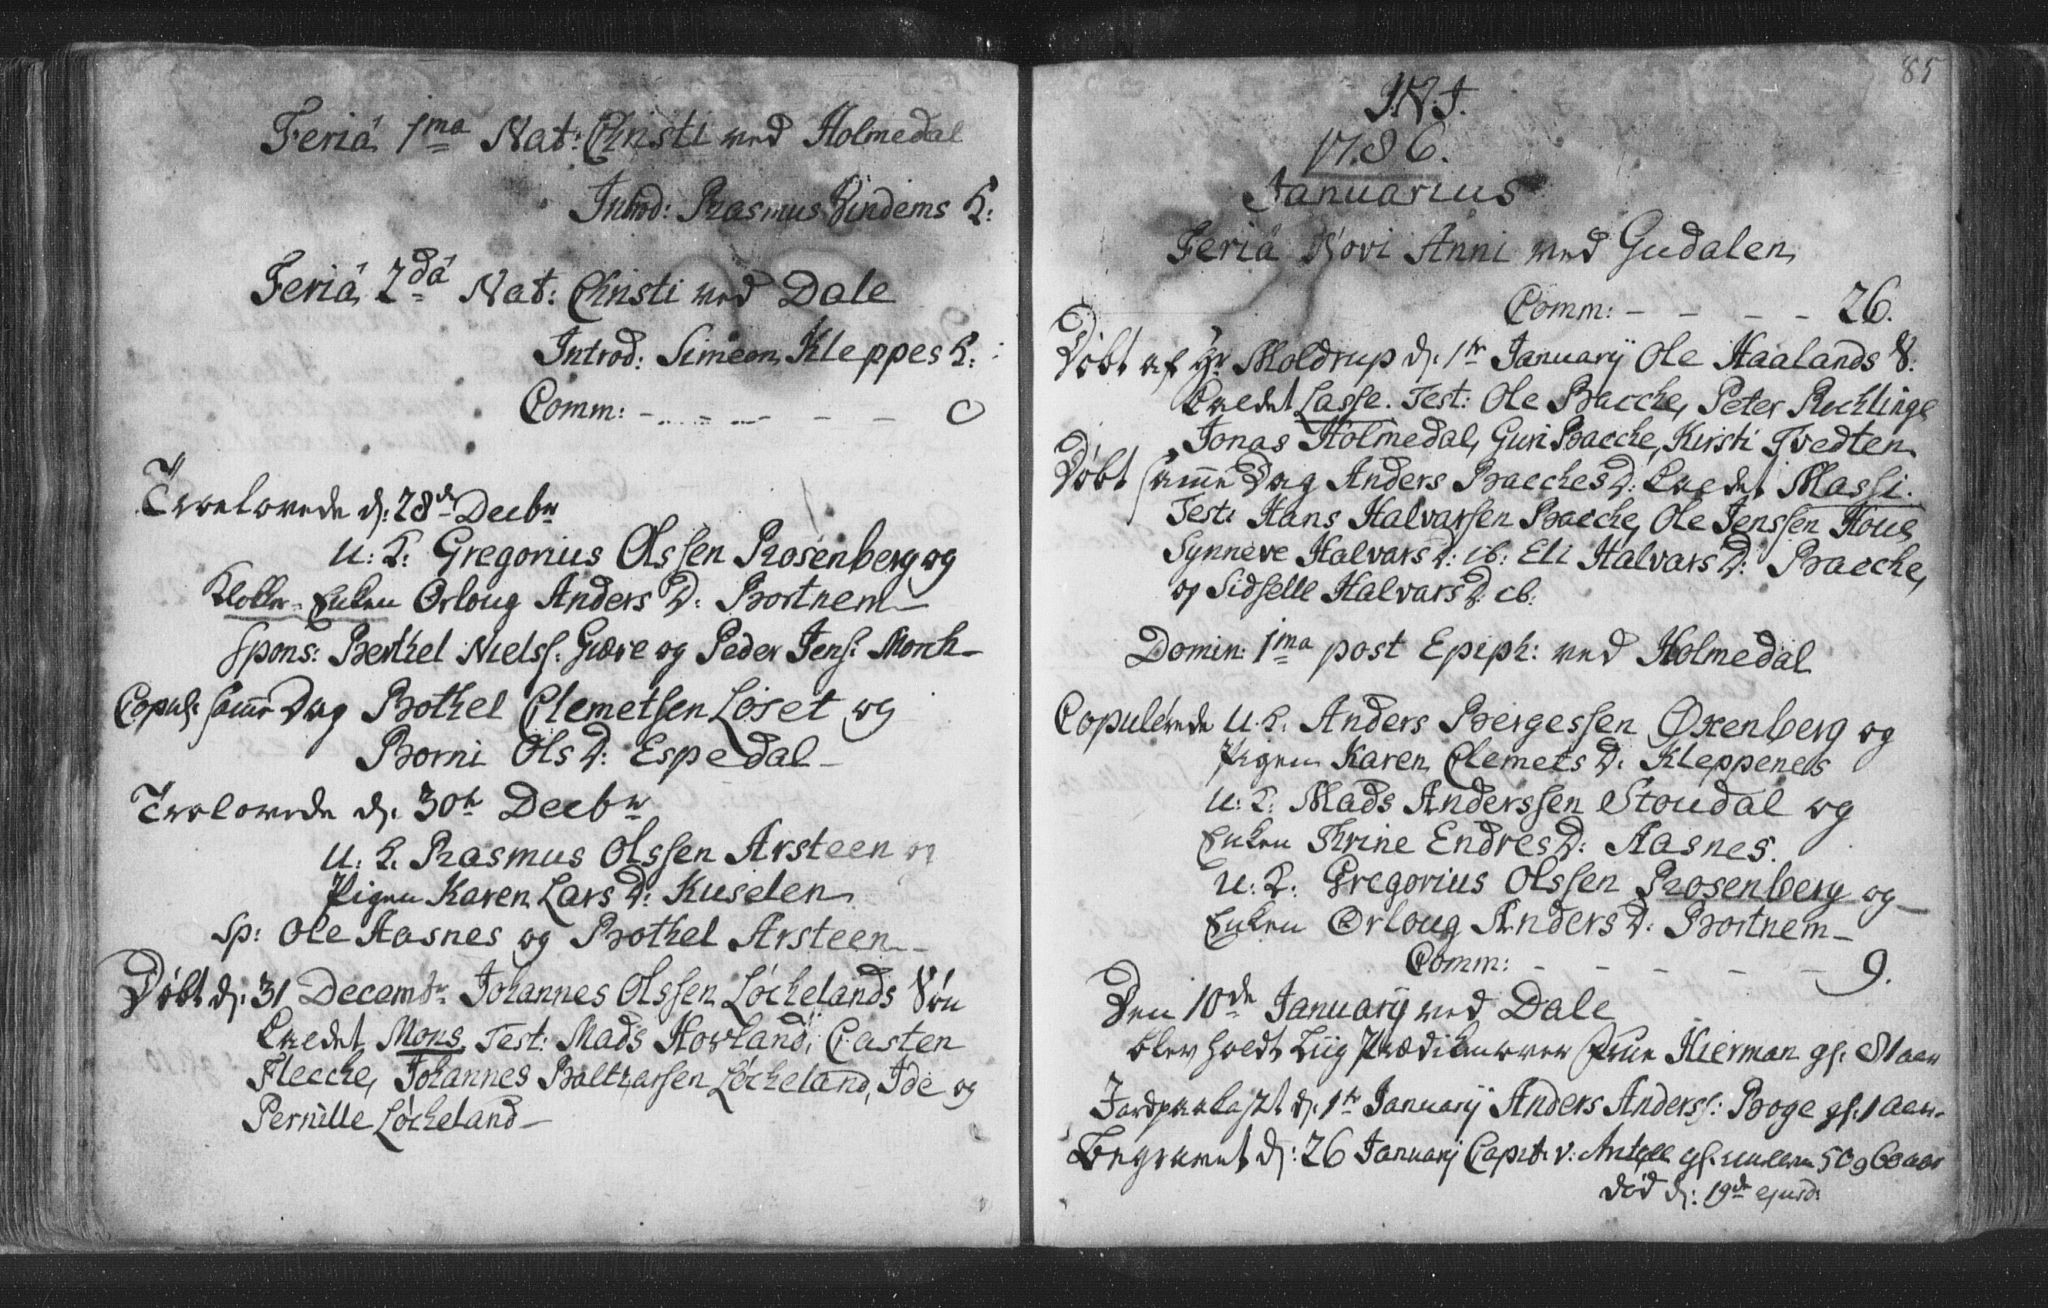 Feriâ 1ma Nat: Christi ved Holmedal
Introd: Rasmus Vindems K:
Feriâ 2dâ Nat: Christi ved Dale
Introd: Simeon Kleppes K:
Comm: - - - - - 0
Trolovede d: 28de Decbr
U: K: Gregorius Olssen Rosenberg og
Klokker-Enken Orloug Anders D: Bortnem
Spons: Berthel Niels: Giære og Peder Jens: Monh
Copul: samme Dag Bothel Clemetssen Løset og
Borni Ols D: Espedal
Trolovede d: 30te Decbr
U. K. Rasmus Olssen Arsteen og
Pigen Karen Lars D: Kuselen
Sp: Ole Aasnes og Bothel Arsteen
Døbt d: 31 Decembr Johannes Olssen Løchelands Søn
kaldet Mons. Test: Mads Hovland, Casten
Flecche, Johannes Balthassen Løcheland, Ide og
Pernille Løcheland
85
I.N.J.
1786.
Januarius
Feriâ Novi Anni ved Gudalen
Comm: - - - - 26.
Døbt af Hr Moldrup d: 1te Januarij Ole Haalands S:
kaldet Lasse. Test: Ole Bacche, Peter Rechlinge
Jonas Holmedal, Guri Bacche, Kirsti Tvedten
Døbt samme Dag Anders Bacches D: kaldet Massi.
Test: Hans Halvarssen Bacche, Ole Jenssen Houe
Synneve Halvars D: ib: Eli Halvars D: Bacche,
og Sidselle Halvars D: ib:
Domin: 1ma post Epiph: ved Holmedal
Copulerede U. K. Anders Bergessen Oxenberg og
Pigen Karen Clemets D: Kleppenes
U: K: Mads Anderssen Stoudal og
Enken Thrine Endres D: Aasnes.
U: K: Gregorius Olssen Rosenberg og
Enken Orloug Anders D: Bortnem
Comm: - - - - - 9.
Den 10de Januarij ved Dale
blev holdt Liig Prædiken over Frue Hierman gl: 81 aar
Jordpaakastet d: 1te Januarij Anders Anderss: Boge gl: 1 aar.
Begravet d: 26 Januarij Capit: v: gl: mellem 50 og 60 aar
død d: 19de ejusd: